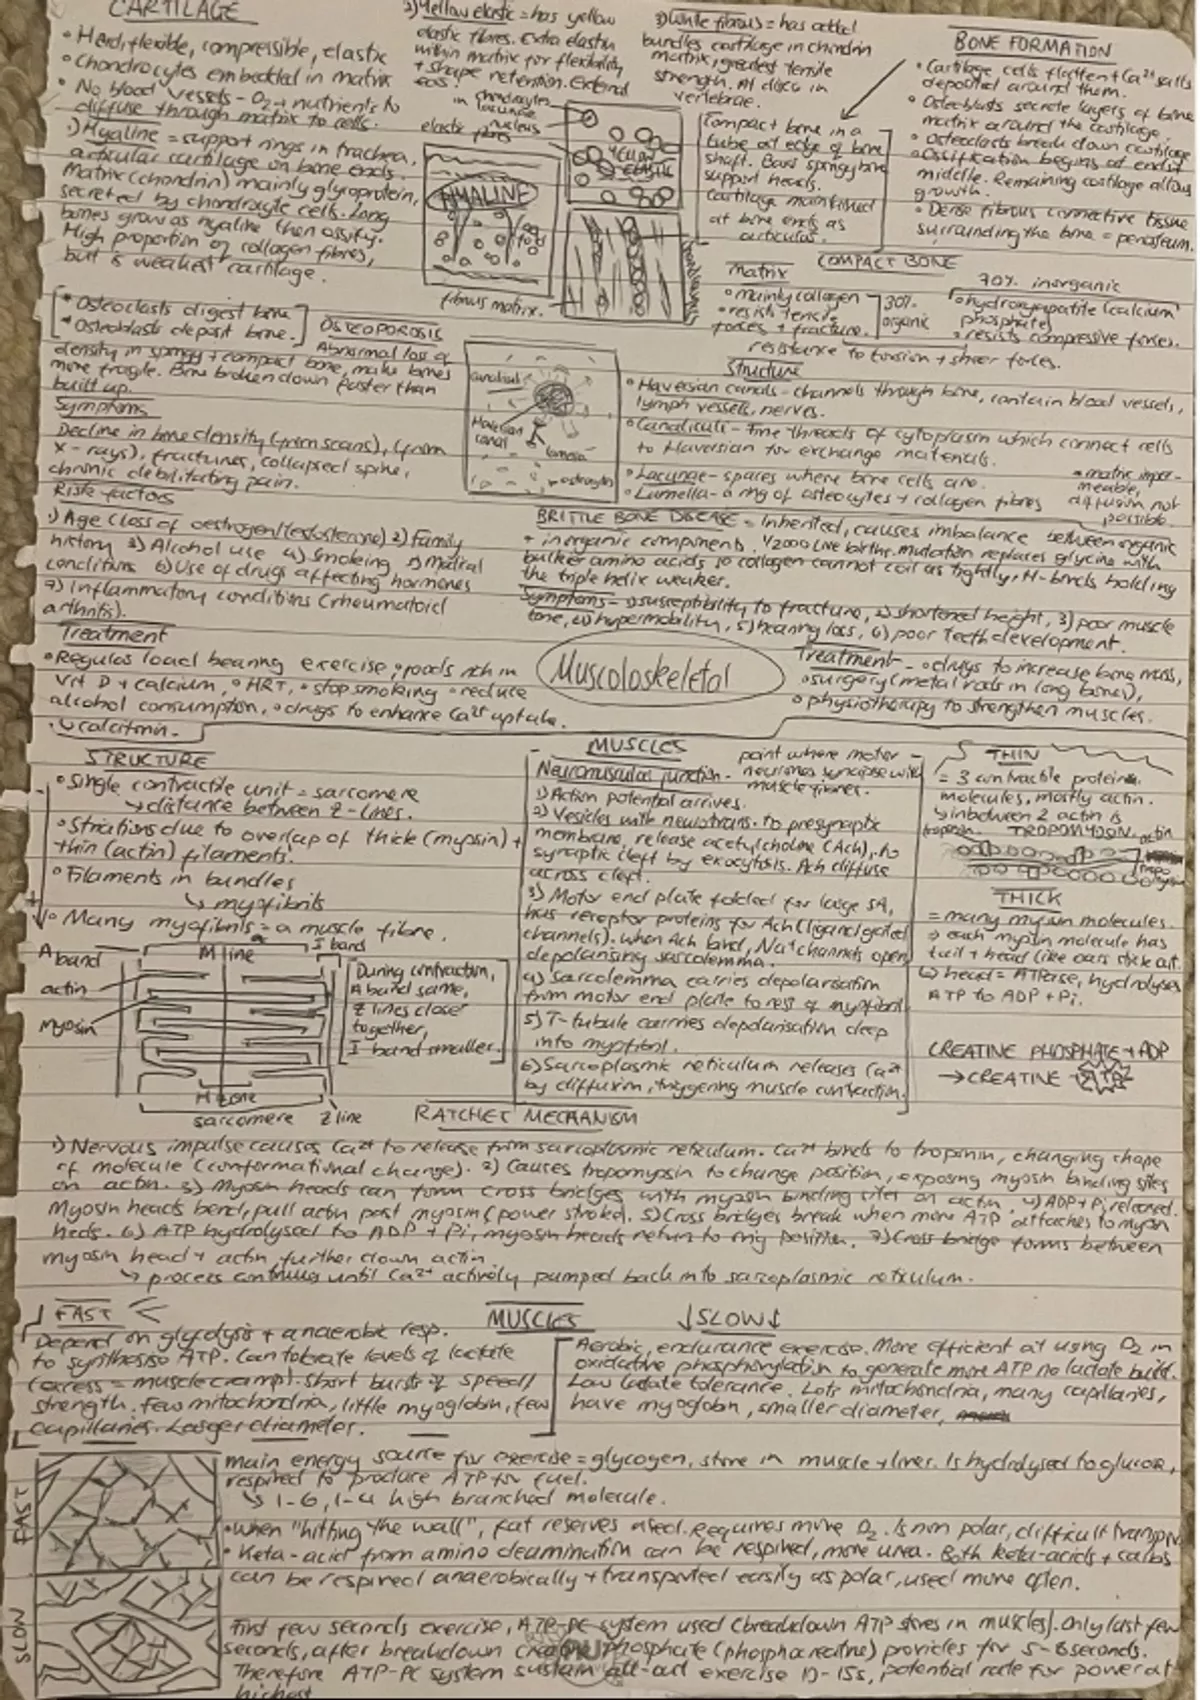 CARTILAGE
• Hard, flexible, compressible, elastic
• Chondrocytes embedded in matrix
• No blood vessels - O2 + nutrients to
diffuse through matrix to cells.
1) Hyaline = support rings in trachea,
articular cartilage on bone ends.
Matrix (chondrin) mainly glycoprotein,
secreted by chondrocyte cells. Long
bones grow as hyaline then ossify.
High proportion of collagen fibres,
but is weakest cartilage.
2) Yellow elastic = has yellow
elastic fibres. Extra elastin
within matrix for flexibility
+ shape retention. External
ear.
chondrocytes
in lacunae
nucleus
elastic fibres
HYALINE
YELLOW
ELASTIC
fibrous matrix.
3) White fibrous = has added
bundles cartilage in chondrin
matrix, greatest tensile
strength. At discs in
vertebrae.
Compact bone in a
tube at edge of bone
shaft. Bars spongy bone
support heads.
Cartilage maintained
at bone ends as
articular.
BONE FORMATION
• Cartilage cells flatten + Ca2+ salts
deposited around them.
• Osteoblasts secrete layers of bone
matrix around the cartilage.
• Osteoclasts break down cartilage
• Ossification begins at ends +
middle. Remaining cartilage allows
growth.
• Dense fibrous connective tissue
surrounding the bone = periosteum.
* Osteoclasts digest bone
* Osteoblasts deposit bone.
OSTEOPOROSIS
Abnormal loss of
density in spongy + compact bone, make bones
more fragile. Bone broken down faster than
built up.
Symptoms
Decline in bone density (from scans), (from
x-rays), fractures, collapsed spine,
chronic debilitating pain.
Risk factors
1) Age (loss of oestrogen/testosterone) 2) Family
history 3) Alcohol use 4) Smoking 5) Medical
conditions 6) Use of drugs affecting hormones
7) Inflammatory conditions (rheumatoid
arthritis).
Treatment
• Regular load bearing exercise, • foods rich in
Vit D + calcium, • HRT, • stop smoking • reduce
alcohol consumption, • drugs to enhance Ca2+ uptake.
↳ calcitonin.
canaliculi
Haversian
canal
lamella
osteocytes
COMPACT BONE
Matrix
• mainly collagen
• resists tensile
forces + fracture.
30%
organic
70% inorganic
• hydroxyapatite (calcium
phosphate)
• resists compressive forces.
resistance to torsion + sheer forces.
Structure
• Haversian canals - channels through bone, contain blood vessels,
lymph vessels, nerves.
• Canaliculi - Fine threads of cytoplasm which connect cells
to Haversian for exchange materials.
• Lacunae - spaces where bone cells are.
• Lamella - a ring of osteocytes + collagen fibres
* matrix imper-
meable,
diffusion not
possible.
BRITTLE BONE DISEASE = Inherited, causes imbalance between organic
+ inorganic components. 1/2000 live births. Mutation replaces glycine with
bulkier amino acids so collagen cannot coil as tightly, H-bonds holding
the triple helix weaker.
Symptoms - 1) susceptibility to fracture, 2) shortened height, 3) poor muscle
tone, 4) hypermobility, 5) hearing loss, 6) poor teeth development.
Musculoskeletal
Treatment - • drugs to increase bone mass,
• surgery (metal rods in long bones),
• physiotherapy to strengthen muscles.
STRUCTURE
• Single contractile unit = sarcomere
↳ distance between Z-lines.
• Striations due to overlap of thick (myosin) +
thin (actin) filaments.
• Filaments in bundles
↳ myofibrils
• Many myofibrils = a muscle fibre.
A band
M line
I band
actin
myosin
H zone
sarcomere
Z line
During contraction,
A band same,
Z lines close
together,
I band smaller.
MUSCLES
Neuromuscular junction - point where motor
neurones synapse with
muscle fibres.
1) Action potential arrives.
2) Vesicles with neurotrans. to presynaptic
membrane, release acetylcholine (Ach), to
synaptic cleft by exocytosis. Ach diffuse
across cleft.
3) Motor end plate folded for large SA,
has receptor proteins for Ach (ligand gated
channels). When Ach bind, Na+ channels open,
depolarising sarcolemma.
4) Sarcolemma carries depolarisation
from motor end plate to rest of myofibril
5) T-tubule carries depolarisation deep
into myofibril.
6) Sarcoplasmic reticulum releases Ca2+
by diffusion, triggering muscle contraction.
THIN
= 3 contractile protein
molecules, mostly actin.
↳ inbetween 2 actin is
troponin. TROPOMYOSIN. actin
THICK
= many myosin molecules.
→ each myosin molecule has
tail + head like oars stick out.
↳ head = ATPase, hydrolyses
ATP to ADP + Pi.
CREATINE PHOSPHATE + ADP
→ CREATINE + ATP
RATCHET MECHANISM
1) Nervous impulse causes Ca2+ to release from sarcoplasmic reticulum. Ca2+ binds to troponin, changing shape
of molecule (conformational change). 2) Causes tropomyosin to change position, exposing myosin binding sites
on actin. 3) Myosin heads can form cross bridges with myosin binding sites on actin. 4) ADP + Pi released.
Myosin heads bend, pull actin past myosin (power stroke). 5) Cross bridges break when more ATP attaches to myosin
heads. 6) ATP hydrolysed to ADP + Pi, myosin heads return to orig position. 7) Cross bridge forms between
myosin head + actin further down actin.
↳ process continues until Ca2+ actively pumped back into sarcoplasmic reticulum.
FAST
MUSCLES
↓SLOW↓
Depend on glycolysis + anaerobic resp.
to synthesise ATP. Can tolerate levels of lactate
(excess = muscle cramp). Short bursts of speed/
strength. Few mitochondria, little myoglobin, few
capillaries. Larger diameter.
Aerobic, endurance exercise. More efficient at using O2 in
oxidative phosphorylation to generate more ATP no lactate build.
Low lactate tolerance. Lots mitochondria, many capillaries,
have myoglobin, smaller diameter,
FAST
SLOW
main energy source for exercise = glycogen, store in muscle + liver. Is hydrolysed to glucose,
respired to produce ATP for fuel.
↳ 1-6, 1-4 high branched molecule.
• When "hitting the wall", fat reserves used. Requires more O2. Is non polar, difficult transport
• Keto-acid from amino deamination can be respired, more urea. Both keto-acids + carbs
can be respired anaerobically + transported easily as polar, used more often.
First few seconds exercise, ATP-PC system used (breakdown ATP stores in muscles). Only last few
seconds, after breakdown creatine phosphate (phosphocreatine) provides for 5-8 seconds.
Therefore ATP-PC system sustain all-out exercise 10-15s, potential rate for power at
highest.